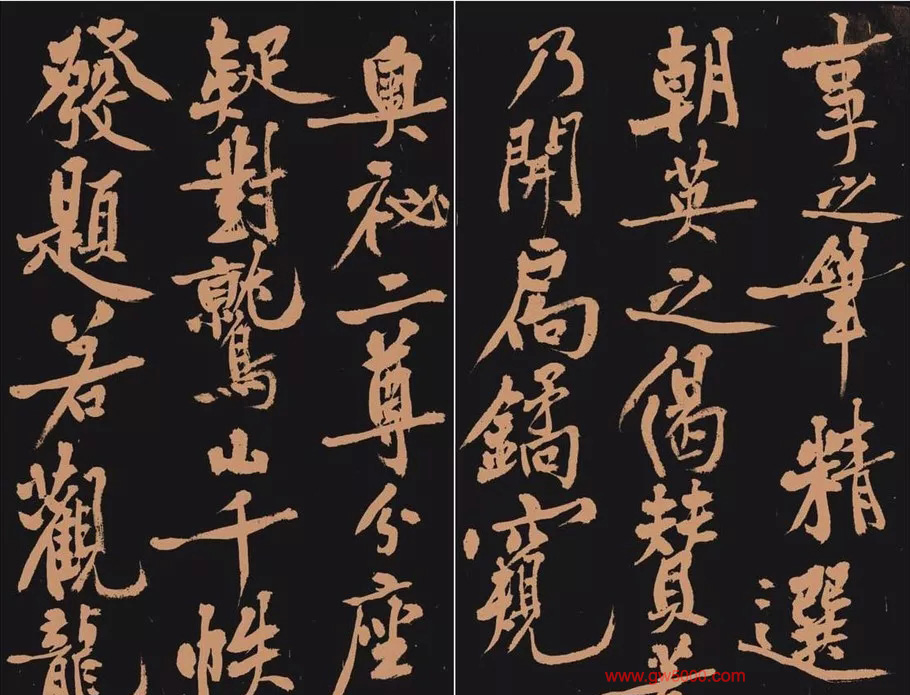 事之筆精選
朝英之偈賛
乃開扃鐍窺
奧祕二尊分座
疑對鷲山千帙
發題若觀龍